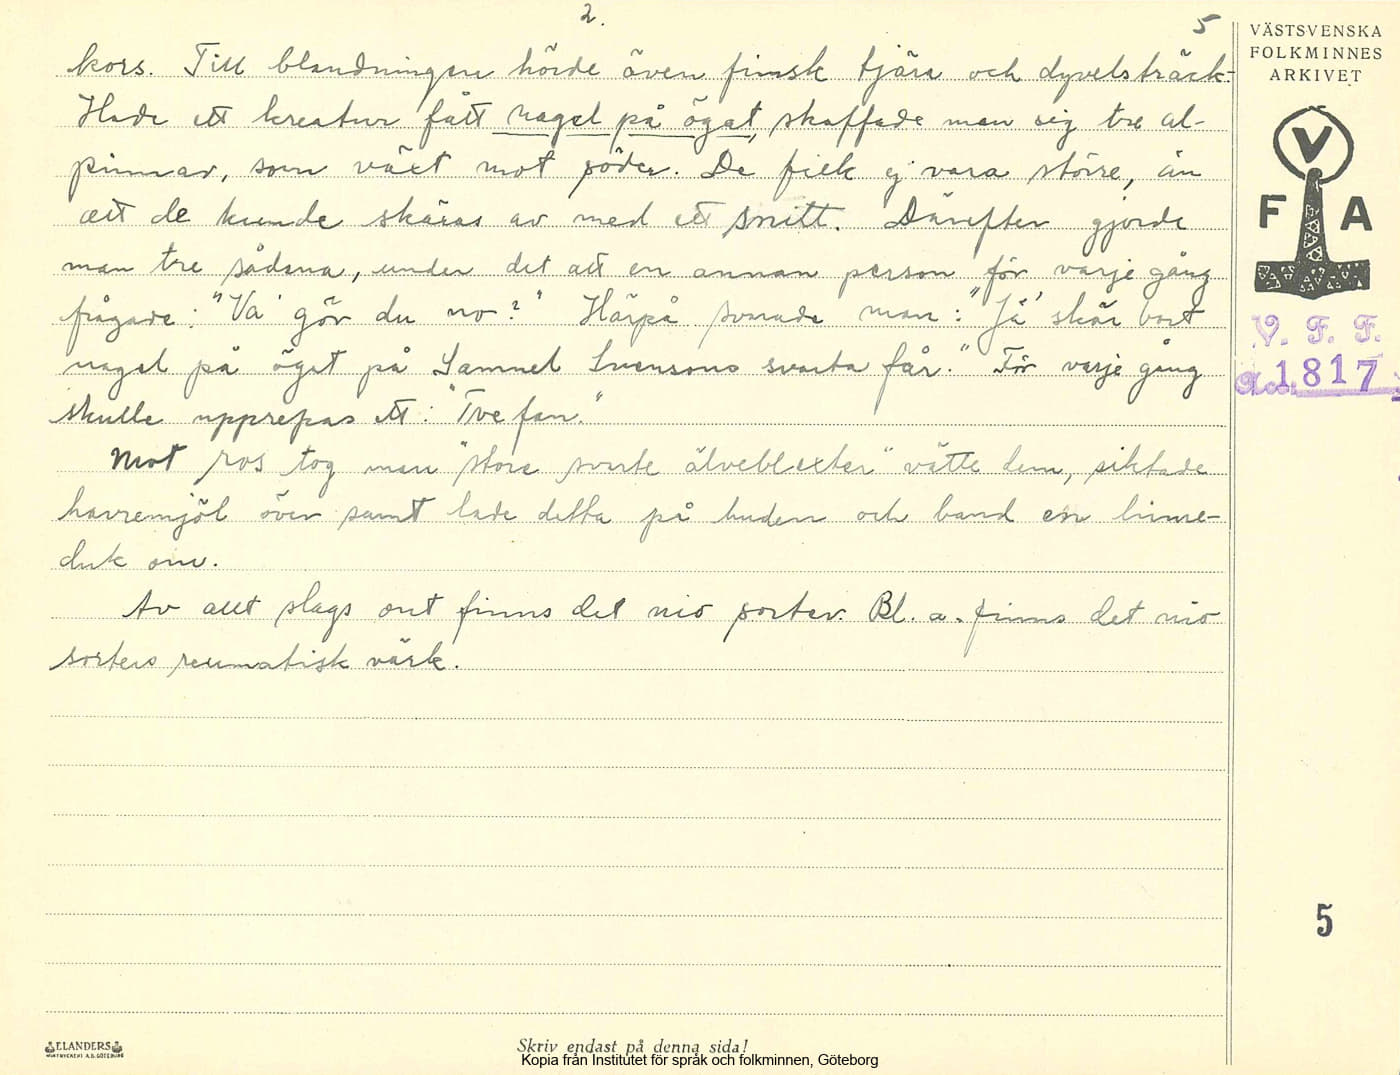 2.
5
kors. Till blandningen hörde även finsk tjära och dyvelsträck.
Hade ett kreatur fått nagel på ögat, skaffade man sig tre al-
pinnar, som växt mot söder. De fick ej vara större, än
att de kunde skäras av med ett snitt. Därefter gjorde
man tre sådana, under det att en annan person för varje gång
frågade: "Va' gör du no?" Härpå svarade man: "Ja' skär bort
nagel på ögat på Samuel Svensons svarta får." För varje gång
skulle upprepas ett: "Tve fan."
Mot ros tog man "stora svarte älveblexter" vätte dem, siktade
havremjöl över samt lade detta på huden och band en linne-
duk om.
Av allt slags ont finns det nio sorter. Bl. a. finns det nio
sorters reumatisk värk.
VÄSTSVENSKA
FOLKMINNES
ARKIVET
V
F A
V. F. F.
Acc. 1817
5
ELANDERS
BOKTRYCKERI A.B. GÖTEBORG
Skriv endast på denna sida!
Kopia från Institutet för språk och folkminnen, Göteborg